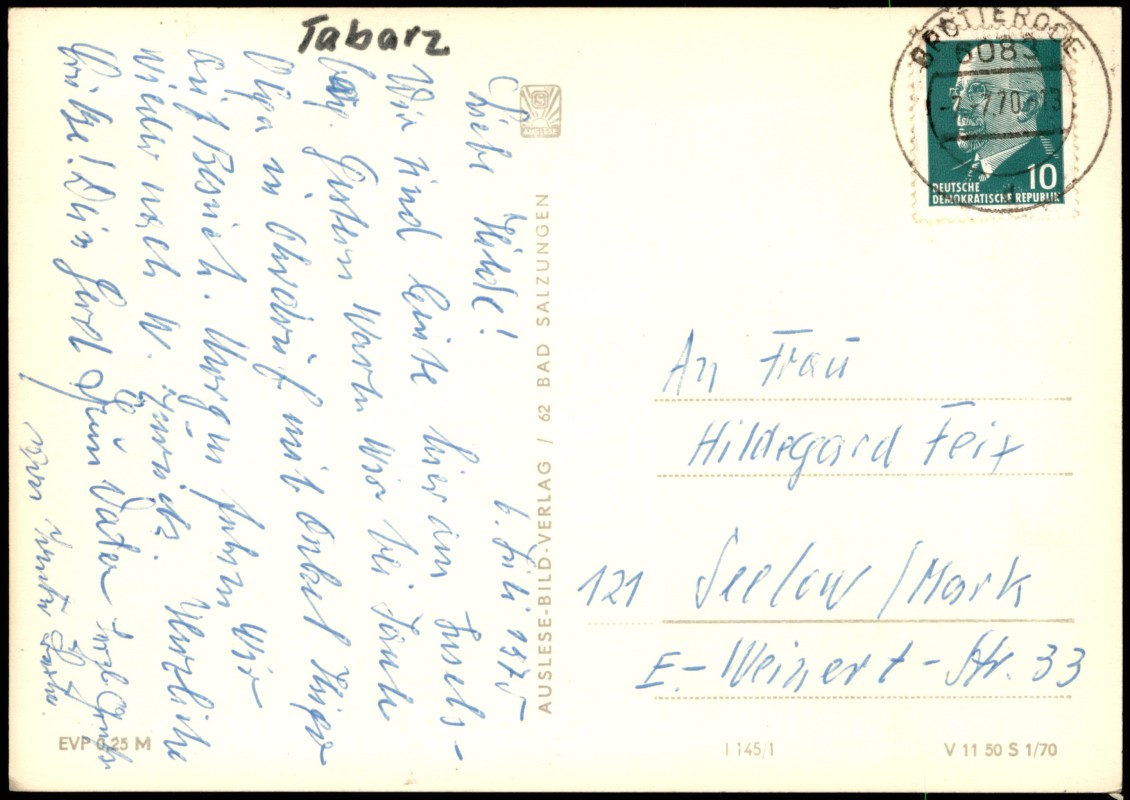 Tabarz
6. Juli 1970
Liebe Hilde!
Wir sind heute hier am Insels-
berg. Gestern waren wir bei Tante
Olga in Ohrdruf mit Onkel Hugo
auf Besuch. Morgen fahren wir
wieder nach W. zurück. Herzliche
Grüße! Dein Gerd
Vater
AUSLESE-BILD-VERLAG / 62 BAD SALZUNGEN
EVP 0,25 M
BROTTERODE
6083
DEUTSCHE
DEMOKRATISCHE REPUBLIK
10
An Frau
Hildegard Feix
121 Seelow/Mark
E.-Weinert-Str. 33
I 145/1
V 11 50 S 1/70